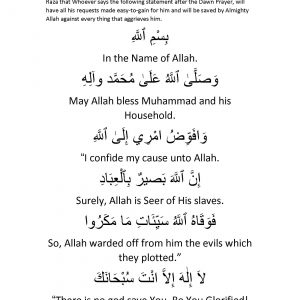 Raza that Whoever says the following statement after the Dawn Prayer, will
have all his requests made easy-to-gain for him and will be saved by Almighty
Allah against every thing that aggrieves him.
بِسْمِ ٱللَّهِ
In the Name of Allah.
وَصَلَّىٰ ٱللَّهُ عَلَىٰ مُحَمَّد وآلِهِ
May Allah bless Muhammad and his
Household.
وَافَوِّضُ امْرِي إِلَىٰ ٱللَّهِ
“I confide my cause unto Allah.
إِنَّ ٱللَّهَ بَصيرٌ بِٱلْعِبَادِ
Surely, Allah is Seer of His slaves.
فَوَقَاهُ ٱللَّهُ سَيِّئَاتِ مَا مَكَرُوا
So, Allah warded off from him the evils which
they plotted.”
لاَ إِلٰهَ إِلاَّ انْتَ سُبْحَانَكَ
“There is no god save You. Be You Glorified!